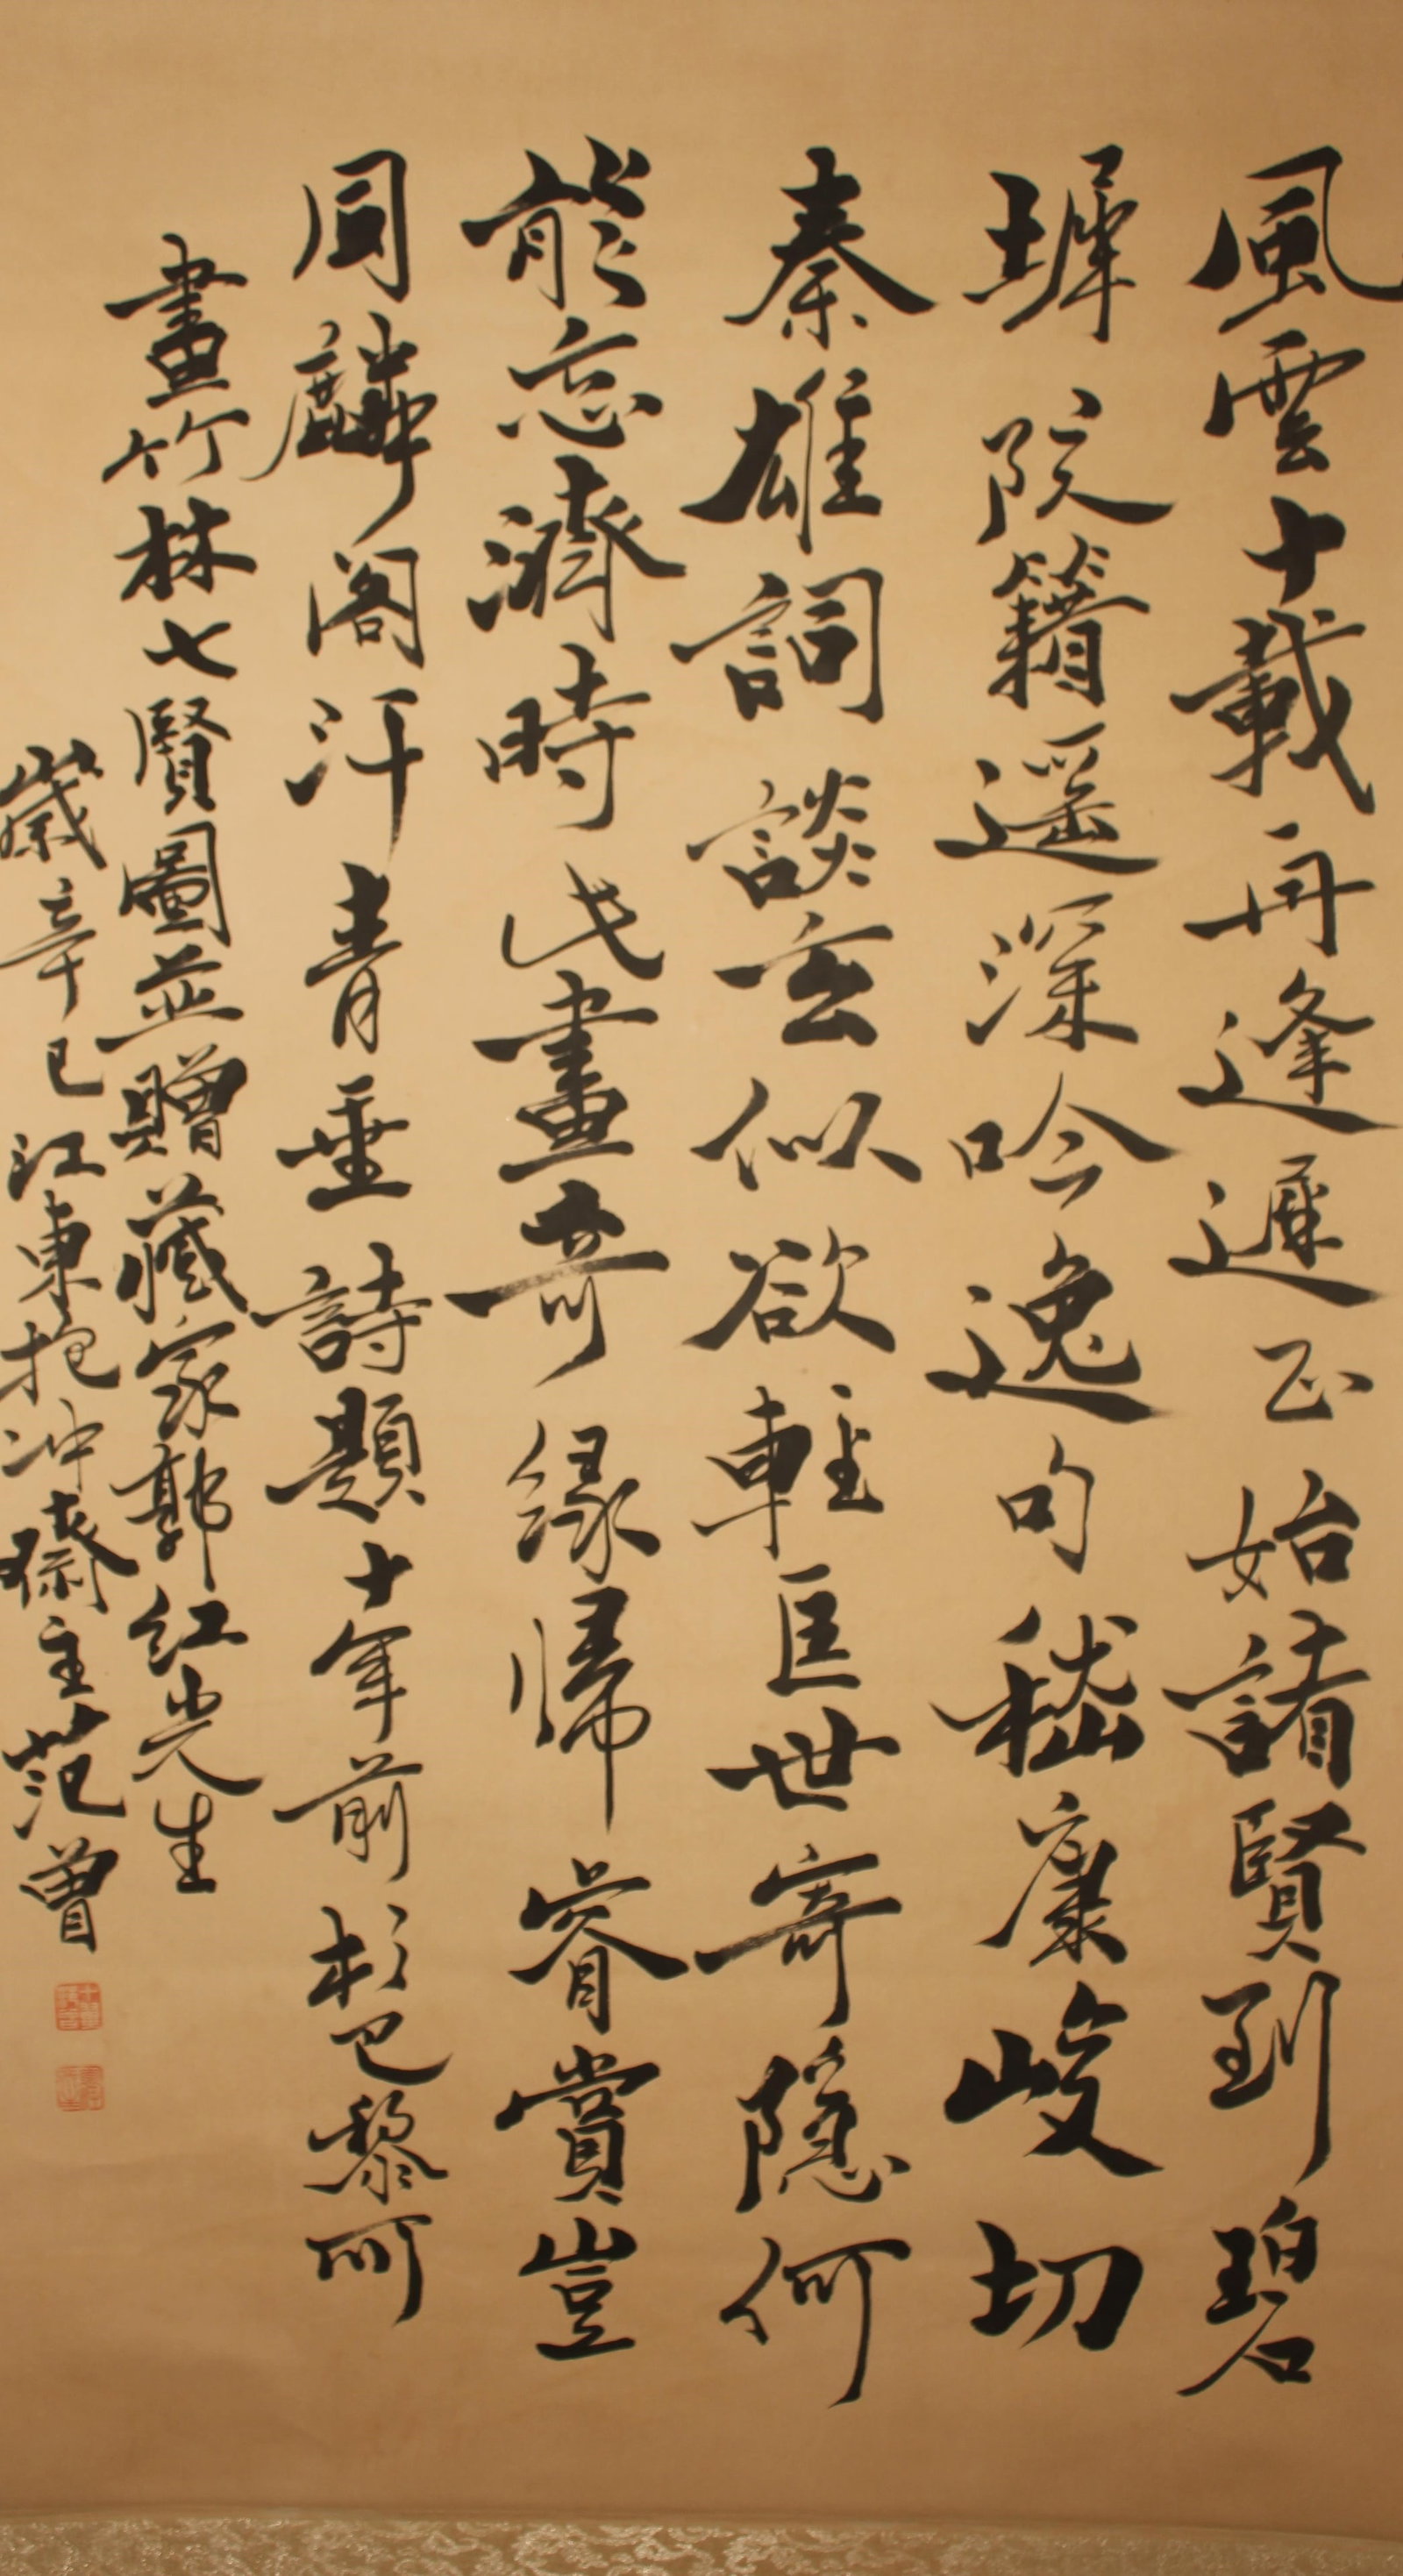 風雲十載再逢遲正始諸賢到碧
墀阮籍遥深吟逸句嵇康峻切
奏雄詞談玄似欲輕匡世寄隱何
能忘濟時此畫奇緣歸睿賞豈
同麟閣汗青垂詩題十年前於巴黎所
畫竹林七賢圖並贈藏家郭紅先生
歲辛巳江東抱冲齋主范曾